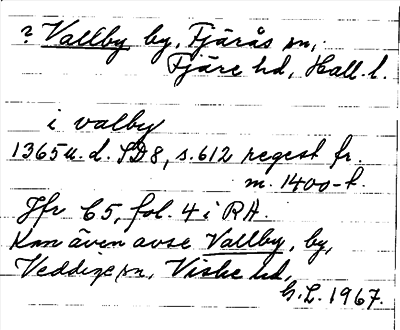 ? Vallby by, Fjärås sn,
Fjäre hd, Hall. l.
i valby
1365 u. d. SD 8, s. 612 regest fr.
m. 1400-t.
Jfr C 5, fol. 4 i RA.
Kan även avse Vallby, by,
Veddige sn, Viske hd,
G.L. 1967.